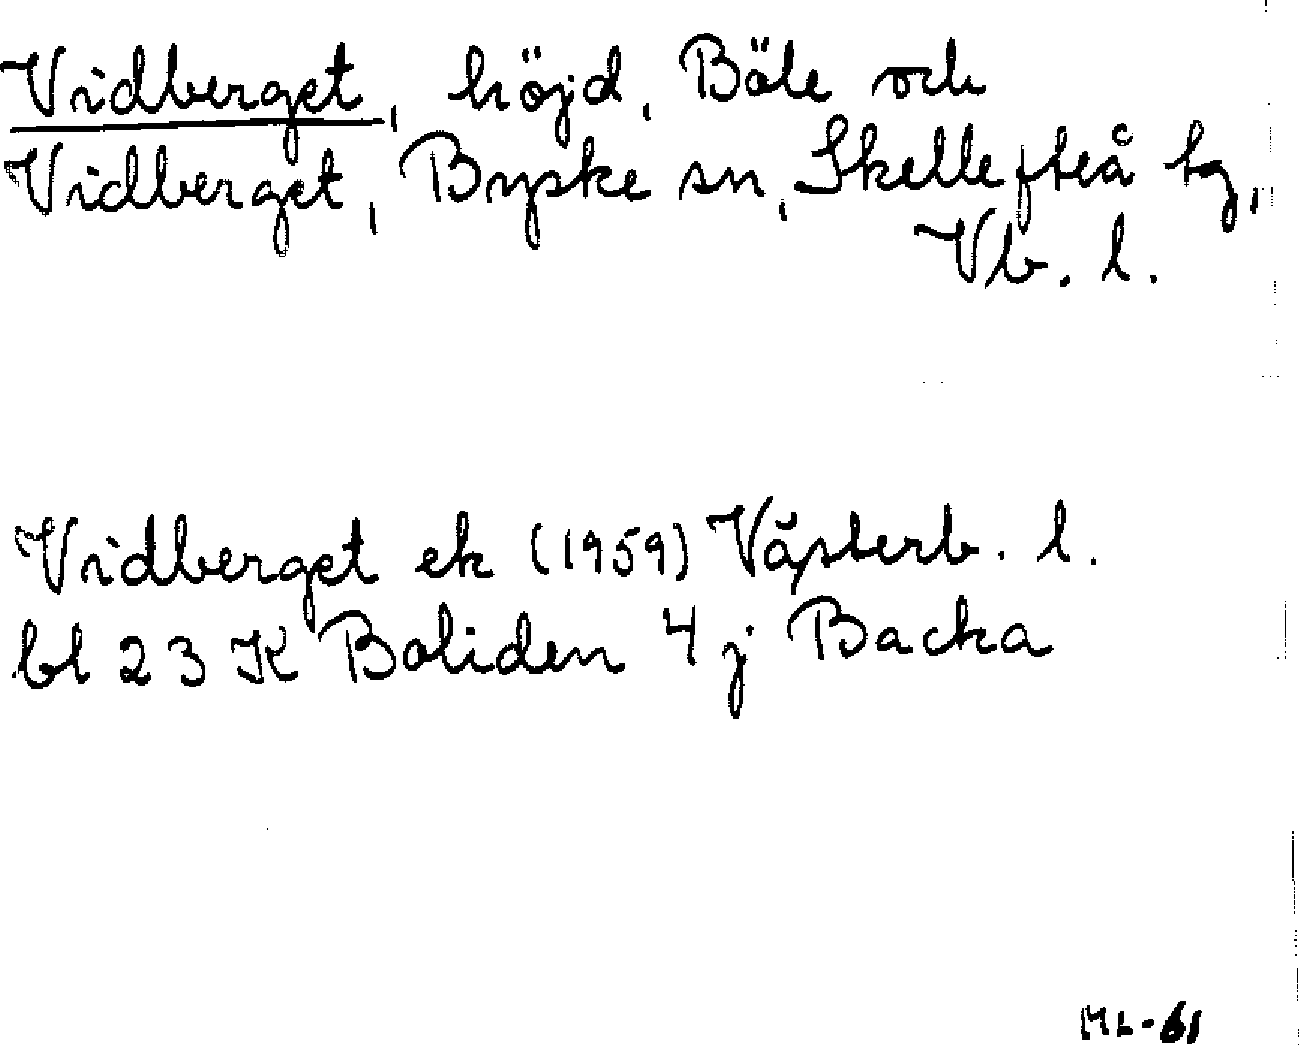 Vidberget, höjd, Böle och
Vidberget, Byske sn, Skellefteå tg,
Vb. l.
Vidberget ek (1959) Västerb. l.
bl 23 K Boliden 4 j Backa
ML-61